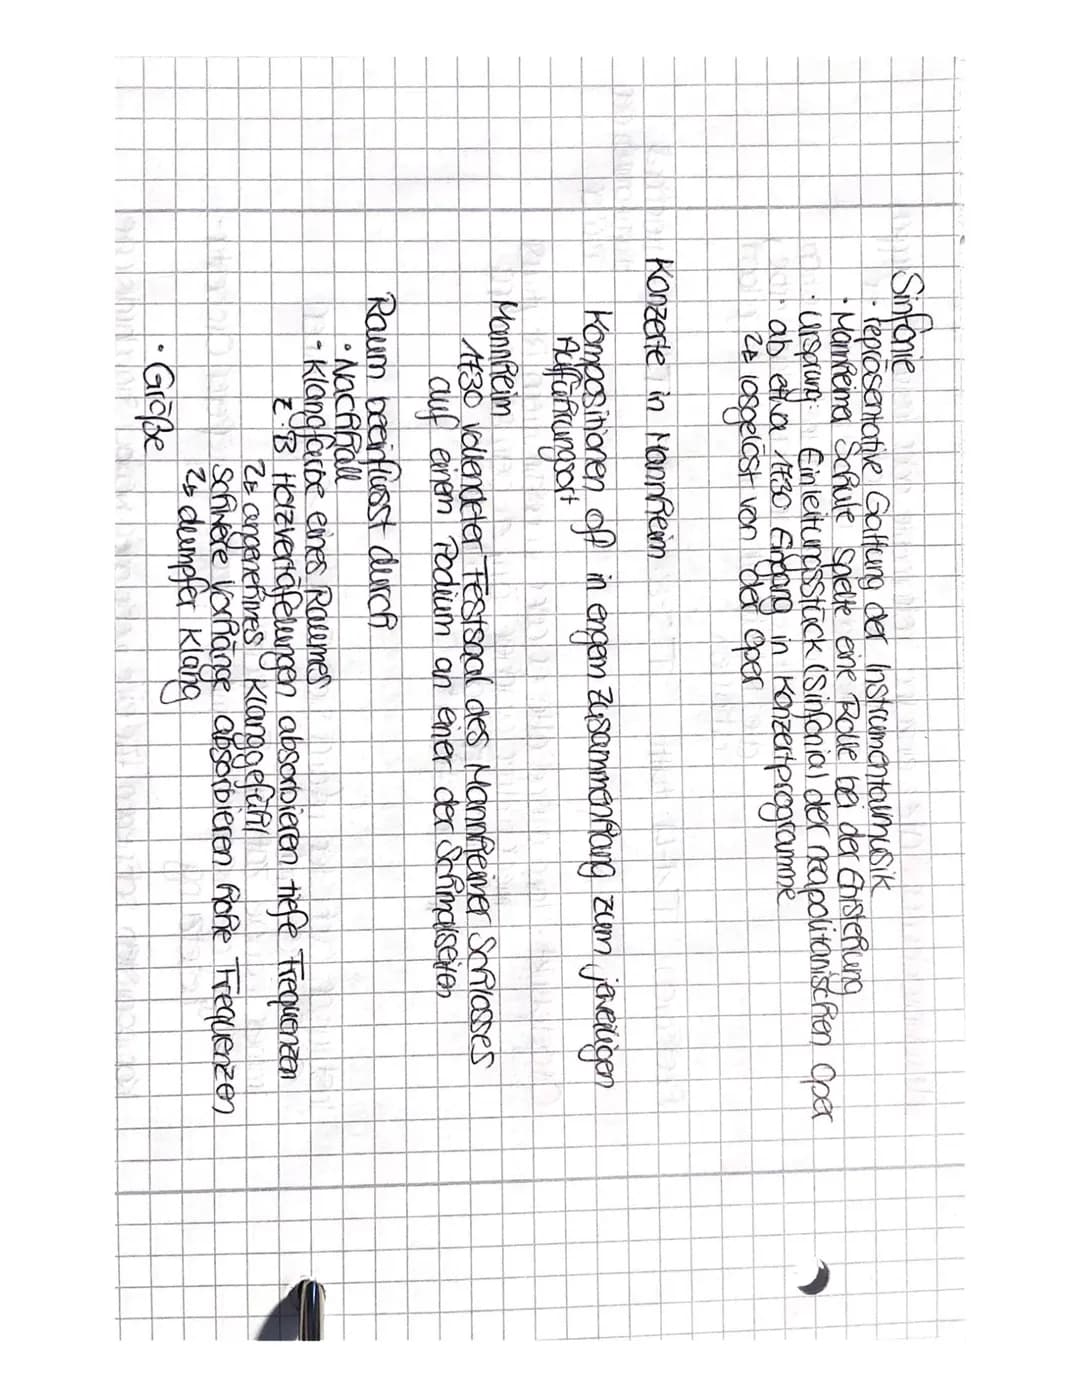 Sinfonie
· repräsentative Gattung der Instrumentalmusik
· Mannheimer Schule spielte eine Rolle bei der Entstehung
· Ursprung: Einleitungsstück (Sinfonia) der neapolitanischen Oper
· ab etwa 1730 Eingang in Konzertprogramme
↳ losgelöst von der Oper
Konzerte in Mannheim
Kompositionen oft in engem Zusammenhang zum jeweiligen
Aufführungsort
Mannheim
1730 vollendeter Festsaal des Mannheimer Schlosses
auf einem Podium an einer der Schmalseiten
Raum beeinflusst durch
· Nachhall
- Klangfarbe eines Raumes
z.B Holzvertäfelungen absorbieren tiefe Frequenzen
↳ angenehmes Klanggefühl
Schwere Vorhänge absorbieren hohe Frequenzen
↳ dumpfer Klang
· Größe